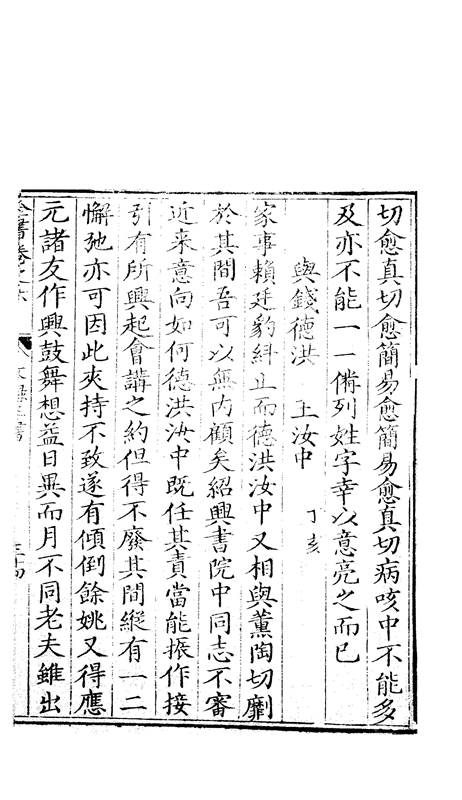 切愈真切愈簡易愈簡易愈真切病咳中不能多
及亦不能一一僃列姓字幸以意亮之而已
與錢德洪 王汝中 丁亥
家事賴廷豹糾正而德洪汝中又相與薰陶切劘
於其間吾可以無内顧矣紹興書院中同志不審
近来意向如何德洪汝中既任其責當能振作接
引有所興起會講之約但得不廢其間縱有一二
懈弛亦可因此夾持不致遂有傾倒餘姚又得應
元諸友作興鼓舞想益日異而月不同老夫雖出
全書卷之六 文錄三 書 三十四